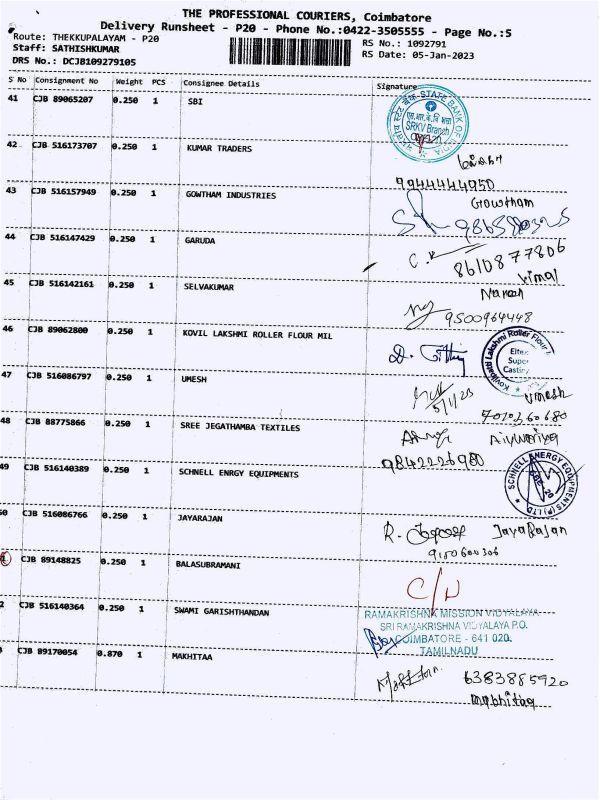 THE PROFESSIONAL COURIERS, Coimbatore
Delivery Runsheet - P20 - Phone No.:0422-3505555 - Page No.:5
Route: THEKKUPALAYAM - P20
RS No.: 1092791
Staff: SATHISHKUMAR
RS Date: 05-Jan-2023
DRS No.: DCJB109279105
S No Consignment No Weight PCS Consignee Details Signature
41 CJB 89065207 0.250 1 SBI
STATE BANK OF INDIA
SRKV Branch
42 CJB 516173707 0.250 1 KUMAR TRADERS
9944444950
43 CJB 516157949 0.250 1 GOWTHAM INDUSTRIES
Gowtham
44 CJB 516147429 0.250 1 GARUDA
8610877806
Vimal
45 CJB 516142161 0.250 1 SELVAKUMAR
Naresh
9500964448
46 CJB 89062800 0.250 1 KOVIL LAKSHMI ROLLER FLOUR MIL
Kovilpatti Lakshmi Roller Flour
Super
47 CJB 516086797 0.250 1 UMESH
5/1/23
Umesh
7010260680
48 CJB 88775866 0.250 1 SREE JEGATHAMBA TEXTILES
9842226980
49 CJB 516140389 0.250 1 SCHNELL ENRGY EQUIPMENTS
SCHNELL ENERGY EQUIPMENTS (P) LTD
50 CJB 516086766 0.250 1 JAYARAJAN
Jayarajan
1 CJB 89148825 0.250 1 BALASUBRAMANI
2 CJB 516140364 0.250 1 SWAMI GARISHTHANDAN
RAMAKRISHNA MISSION VIDYALAYA
SRI RAMAKRISHNA VIDYALAYA P.O.
COIMBATORE - 641 020.
TAMILNADU
3 CJB 89170054 0.870 1 MAKHITAA
6383885920